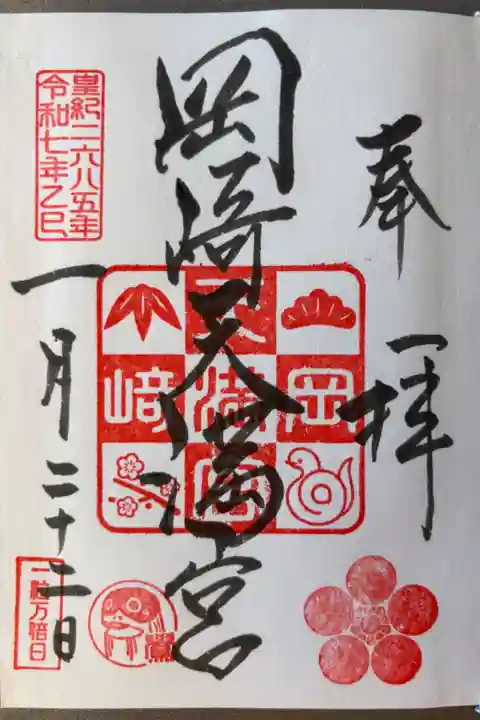 奉拝
岡崎天満宮
皇紀二六八五年
令和七年乙巳
一月二十二日
岡﨑
天満宮
一粒万倍日